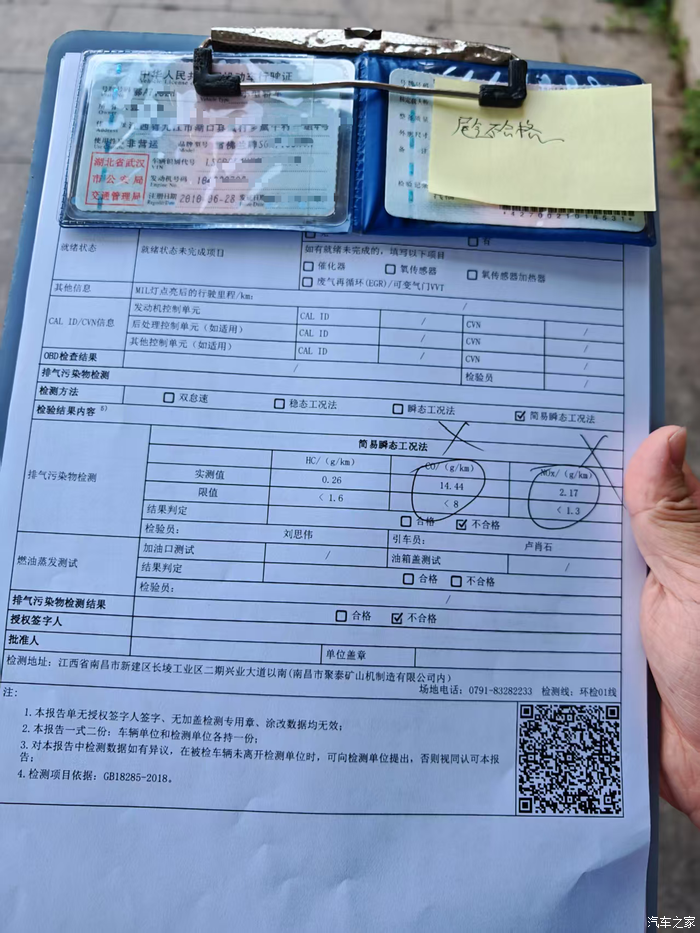 中华人民共 机动车行驶证
非营运
品牌型号
湖北省武汉
市公安局
交通管理局
车辆识别代号
发动机号码
注册日期 2010-06-28 发证日期
尾气不合格
就绪状态 就绪状态未完成项目 有
如有就绪未完成的，填写以下项目
催化器 氧传感器 氧传感器加热器
废气再循环(EGR)/可变气门VVT
其他信息 MIL灯点亮后的行驶里程/km: /
CAL ID/CVN信息 发动机控制单元 CAL ID / CVN /
后处理控制单元（如适用） CAL ID / CVN /
其他控制单元（如适用） CAL ID / CVN /
OBD检查结果 / 检验员 /
排气污染物检测
检测方法 双怠速 稳态工况法 瞬态工况法 ☑ 简易瞬态工况法
检验结果内容 5)
排气污染物检测 简易瞬态工况法
HC/（g/km） CO/（g/km） NOx/（g/km）
实测值 0.26 14.44 2.17
限值 <1.6 <8 <1.3
结果判定 合格 ☑ 不合格
检验员: 刘思伟 引车员: 卢肖石
燃油蒸发测试 加油口测试 / 油箱盖测试 /
结果判定 合格 不合格
检验员: /
排气污染物检测结果 合格 ☑ 不合格
授权签字人
批准人 单位盖章
检测地址: 江西省南昌市新建区长堎工业区二期兴业大道以南(南昌市聚泰矿山机制造有限公司内)
场地电话: 0791-83282233 检测线: 环检01线
注:
1.本报告单无授权签字人签字、无加盖检测专用章、涂改数据均无效;
2.本报告一式二份: 车辆单位和检测单位各持一份;
3.对本报告中检测数据如有异议，在被检车辆未离开检测单位时，可向检测单位提出，否则视同认可本报
告;
4.检测项目依据: GB18285-2018。
汽车之家